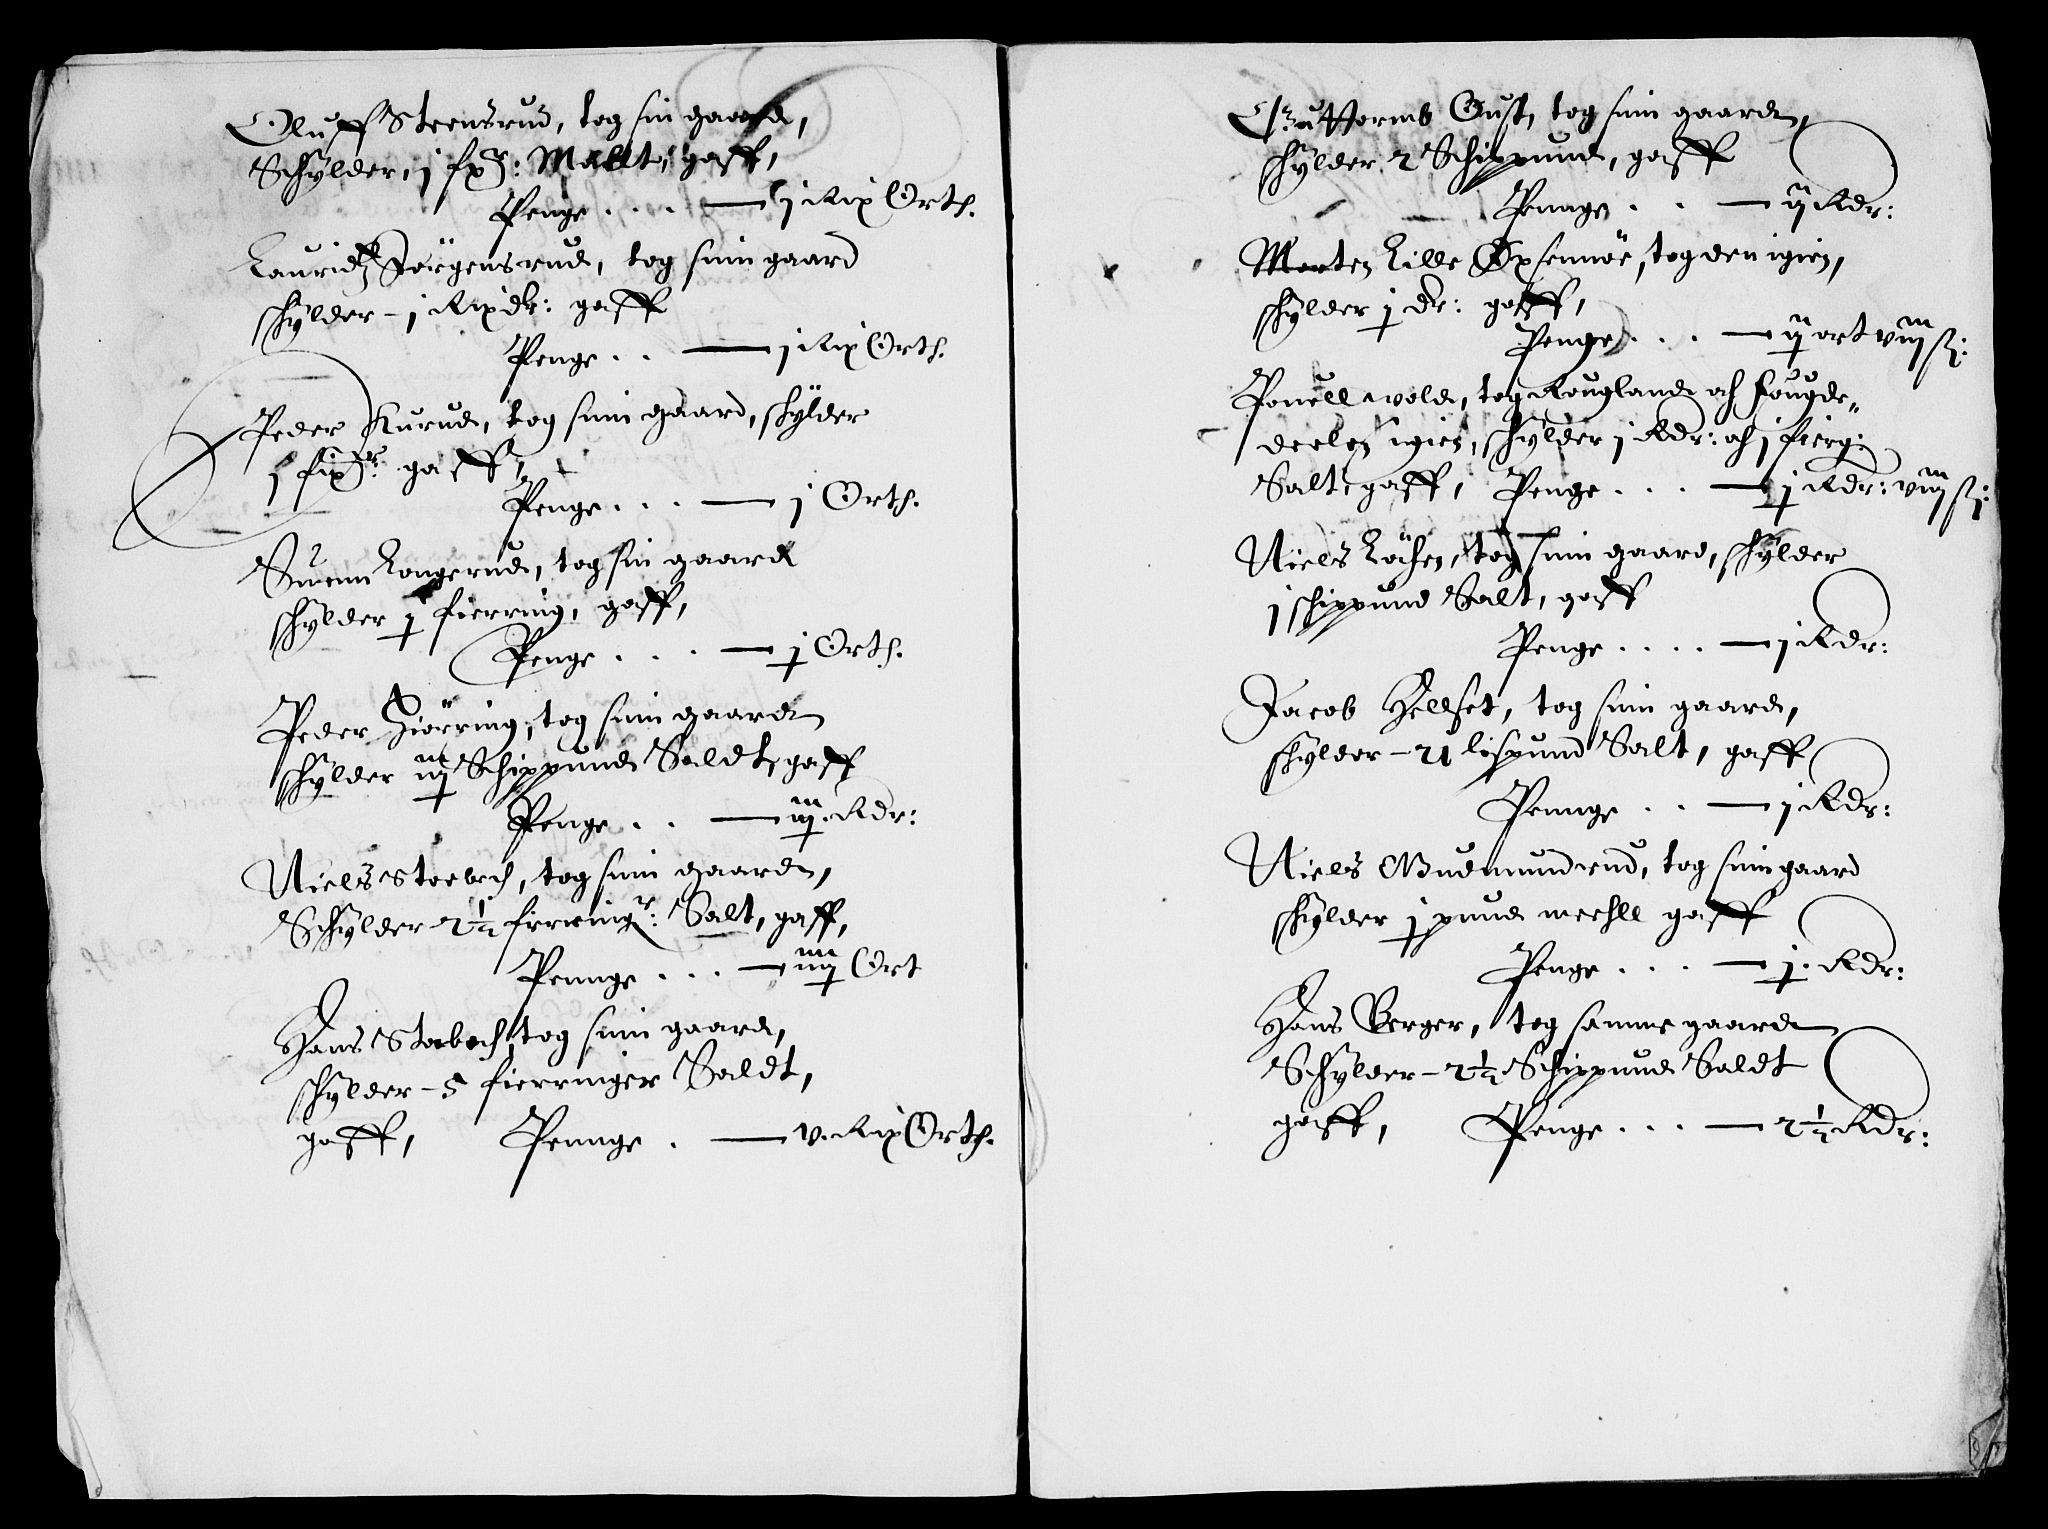 Oluff Steensrud, tog sin gaard,
Schylder, j fxr: Malt, gaff,
Penge . . . . — j Rix Orth.
Lauridtz Jörgensrud, tog sinn gaard
schylder – j Rixdlr: gaff
Penge . . — j Rix Orth.
Peder Rurud, tog sinn gaard, schylder
j fixr: gaff,
Penge . . . — j Orth.
Suenn Longerud, tog sin gaard
schylder j fierring, gaff,
Penge . . . — j Orth.
Peder Hiörring, tog sinn gaard
schylder iij Schippund Saldt, gaff
Penge . . — iij Rdr:
Niels Stoebech, tog sinn gaard,
Schylder 2½ fierringr: Salt, gaff,
Pennge . . . — iiij Ort
Hans Stobech, tog sinn gaard,
schylder – 5 fierringer Saldt,
gaff, Pennge . — v. Rix Orth.
Guttormb Oust, tog sinn gaard,
schylder 2 Schippund, gaff
Pennge . . — ij Rdr:
Morten Lille Øxsennöe, tog den igien,
schylder j dr: gaff,
Penge . . . — ij ort viij ß:
Pouell wold, tog Rougland och fougde„
deelen igien, schylder j Rdr: och j fierg:
Salt, gaff, Penge . . . — j Rdr: viij ß:
Niels Löchen, tog sinn gaard, schylder
j schippund Salt, gaff
Penge . . . . — j Rdr:
Jacob Hellset, tog sinn gaard,
schylder – 21 lispund Salt, gaff
Pennge . . — j Rdr:
Niels Gudmundrud, tog sinn gaard
schylder j pund meehll gaff
Penge . . . — j. Rdr:
Hans Berger, tog samme gaard
Schylder – 2½ Schippund Saldt
gaff, Penge . . . — 2½ Rdr: